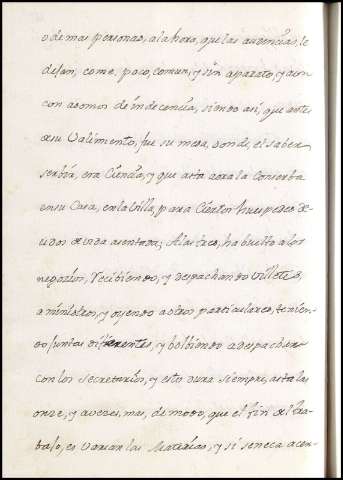 o demas personas, a la hora, que las audiencias, le
dejan; come, poco, comun, y sin aparato, y aun
con asomos de indecencia, siendo asi, que antes
de su Valimiento, fue su mesa, donde, el saber
serbir, era Ciencia, y que asta aora la conserba
en su Casa, en la Villa, para Ciertos huespedes de
vida asentada; A las tres, ha buelto a los
negozios, Recibiendo, y despachando villetes,
a ministros, y oyendo a otros particulares, tenien-
do Juntas diferentes, y bolbiendo a despachar
con los secretarios, y esto dura siempre, asta las
onze, y a vezes, mas, de modo, que el fin del tra-
bajo, es variar las Materias, y si seneca acon-